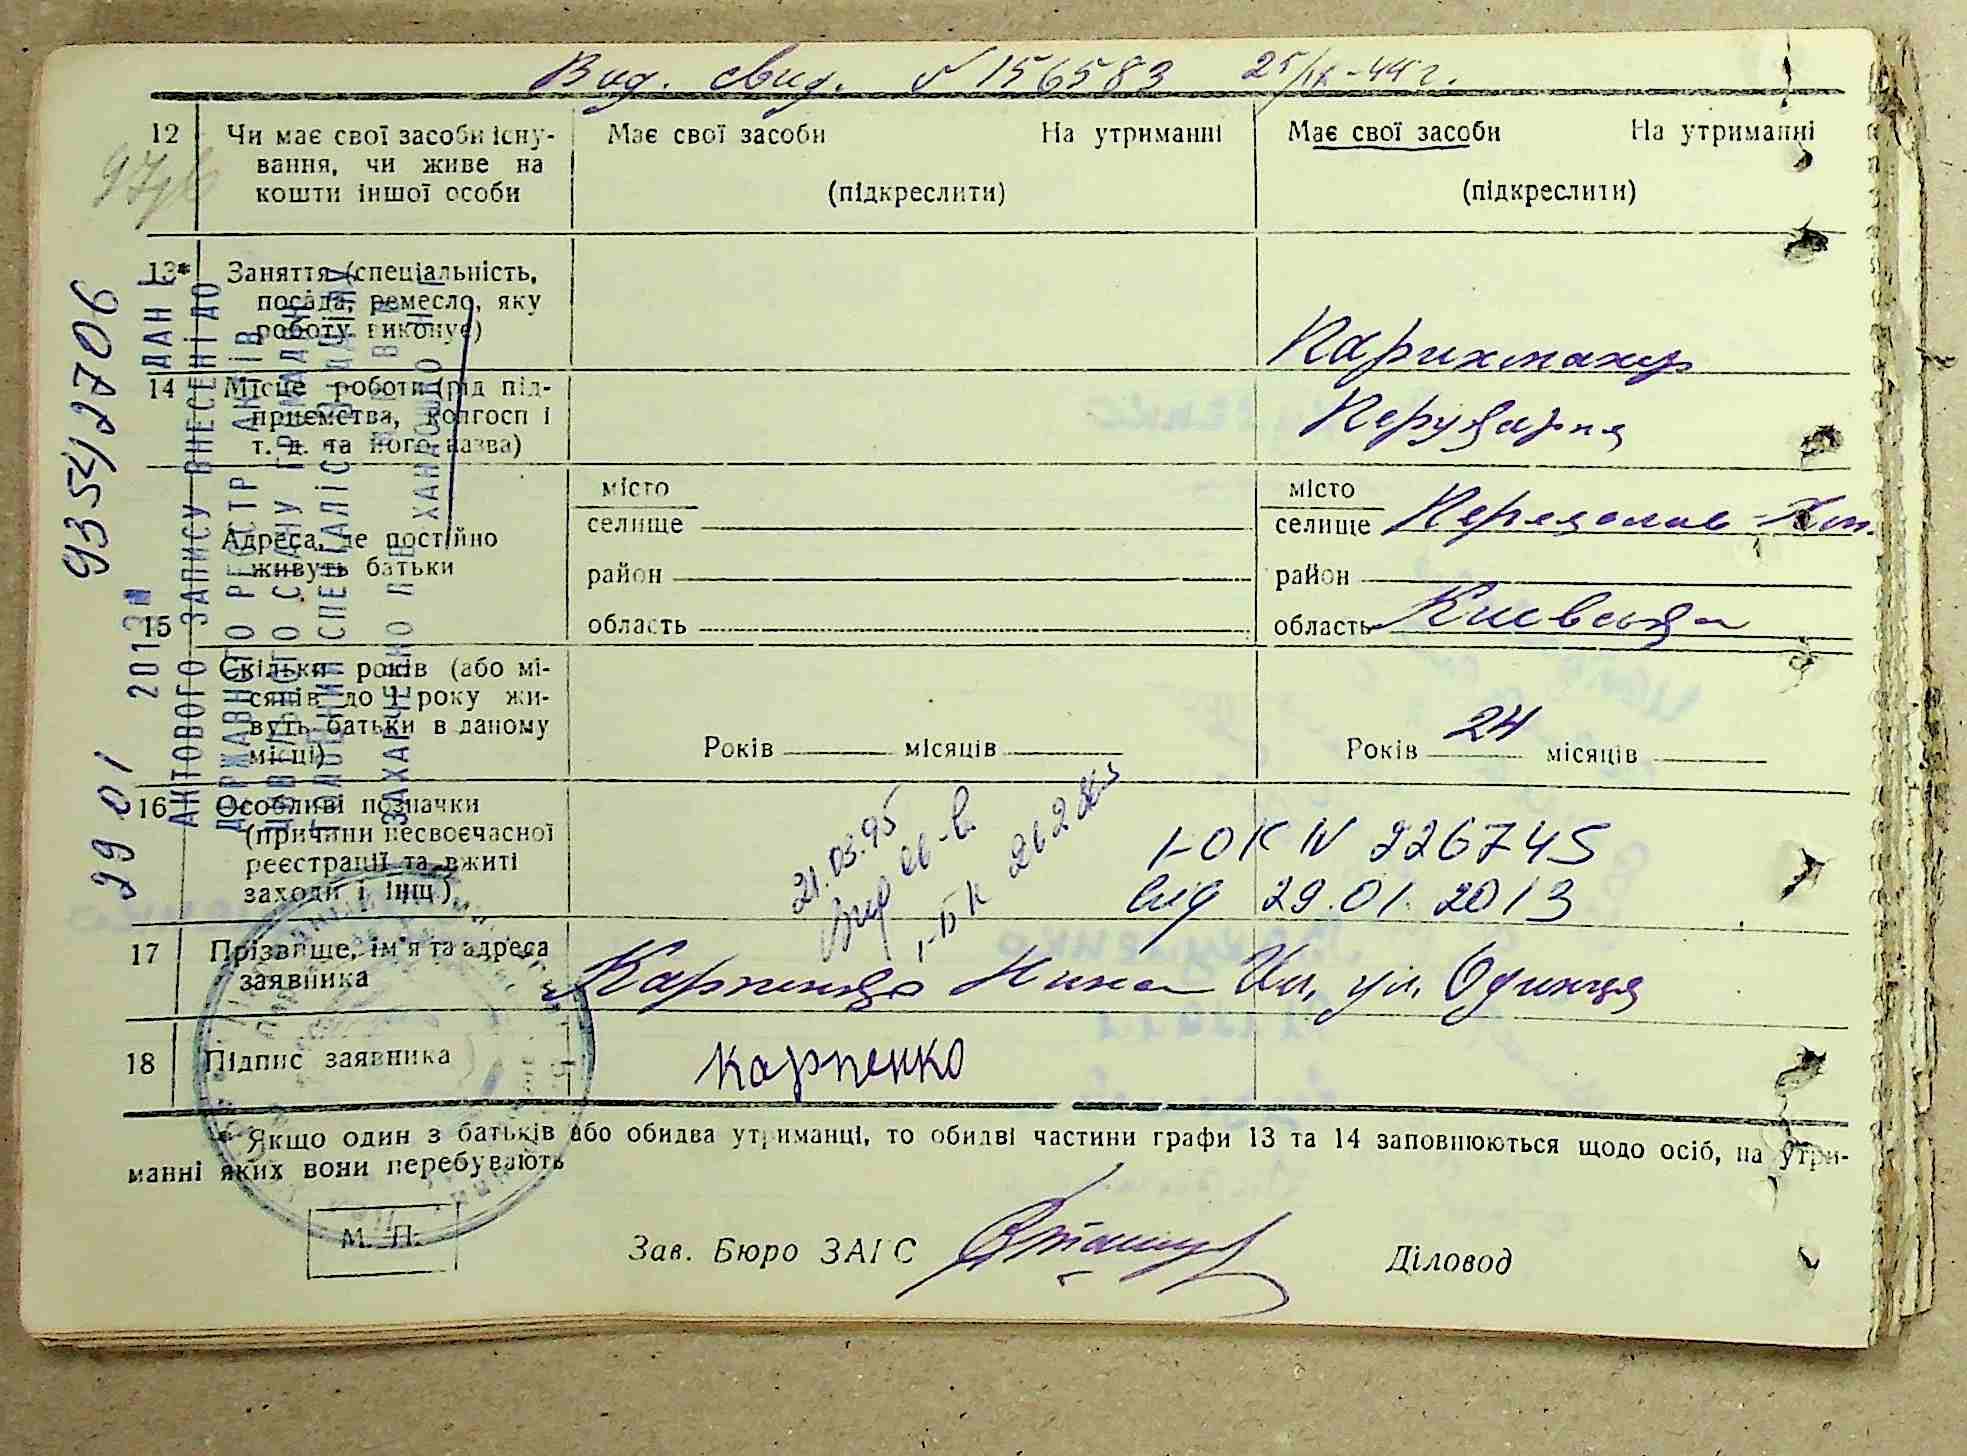 Вид. свид. № 156583 25/IX-44 г.
12 Чи має свої засоби існу-
вання, чи живе на
кошти іншої особи
Має свої засоби На утриманні
(підкреслити)
Має свої засоби На утриманні
(підкреслити)
13* Заняття (спеціальність,
посада, ремесло, яку
роботу виконує)
Парикмахер
14 Місце роботи (рід під-
приємства, колгосп і
т. д. та його назва)
Перукарня
15 Адреса, де постійно
живуть батьки
місто
селище
район
область
місто
селище Переяслав-Хм.
район
область Киевська
Скільки років (або мі-
сяців до 1 року жи-
вуть батьки в даному
місці)
Років місяців
Років 24 місяців
16 Особливі позначки
(причини несвоєчасної
реєстрації та вжиті
заходи і інщ.)
21.03.95
I-ОК N 226745
від 29.01.2013
17 Прізвище, ім'я та адреса
заявника
Карпенко Нина Ив. ул. Одинця
18 Підпис заявника
Карпенко
* Якщо один з батьків або обидва утриманці, то обидві частини графи 13 та 14 заповнюються щодо осіб, на утри-
манні яких вони перебувають
М. П.
Зав. Бюро ЗАГС
Діловод
93542706
29 01 2013
ДАНІ
АКТОВОГО ЗАПИСУ ВНЕСЕНІ ДО
ДЕРЖАВНОГО РЕЄСТР АКТІВ
ЦИВІЛЬНОГО СТАНУ ГРОМАДЯН